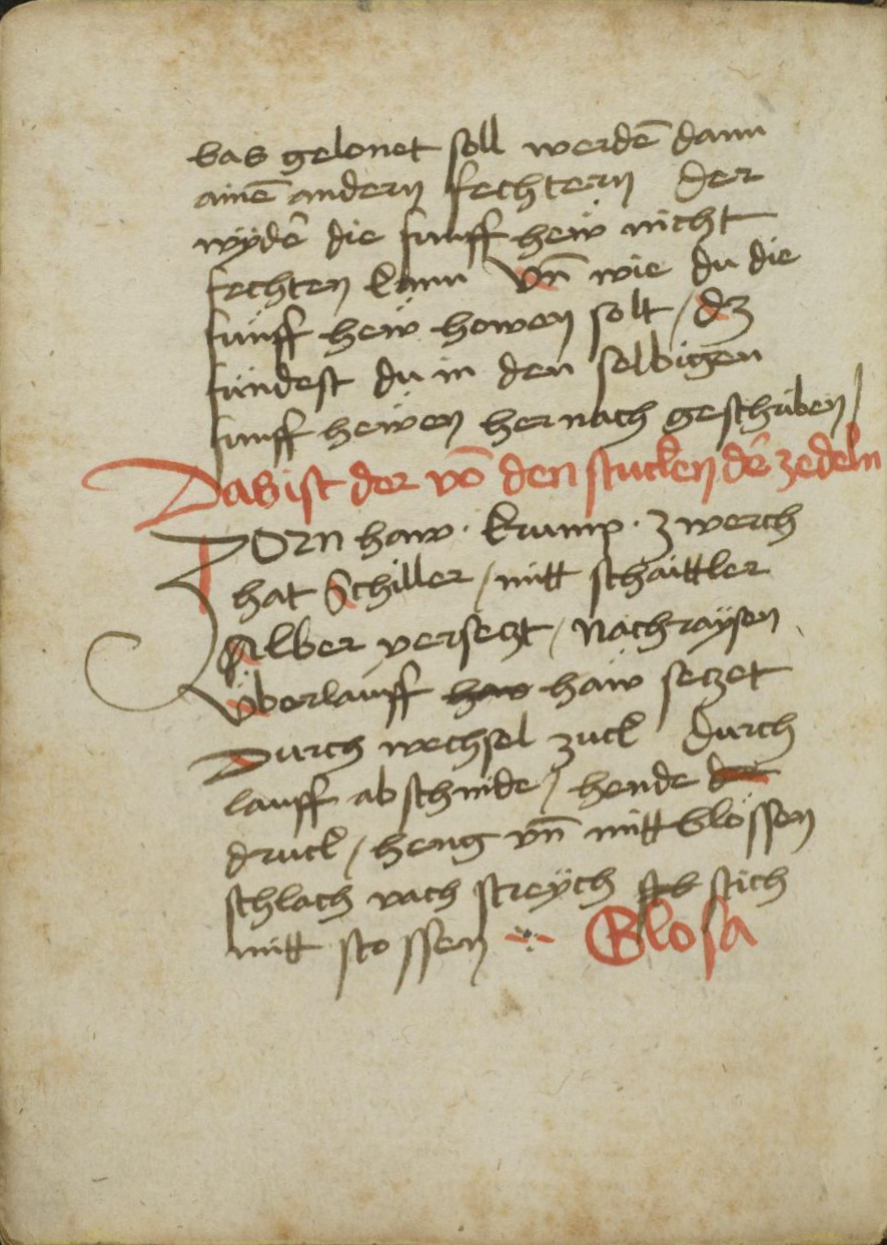 bas gelonet soll werdē dann
ainē andern fechtern der
wydē die funff hew nicht
fechten kann vn̄ wie du die
fünff hew howen solt / dz
fündest du in den selbigen
funff hewen hernach geschriben /
Das ist der vō den stucken dē zedeln
Zorn haw · krump · zwerch
hat Schiller / mitt schaittler
Alber versetzt / Nachraÿsen
Vberlauff haw haw setzet
Durch wechsel zuck durch
lauff abschnide / hende
druck / heng vn̄ mitt blössen
schlach vach streÿch stich
mitt stossen Glosa